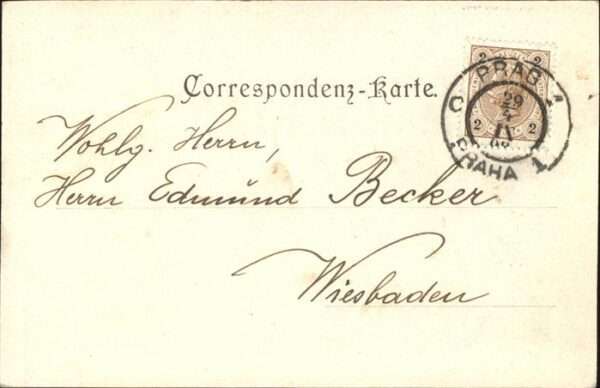 Correspondenz-Karte.
2 2
2 2
PRAG 1
29
4
PRAHA 1
Wohlg. Herrn,
Herrn Edmund Becker
Wiesbaden